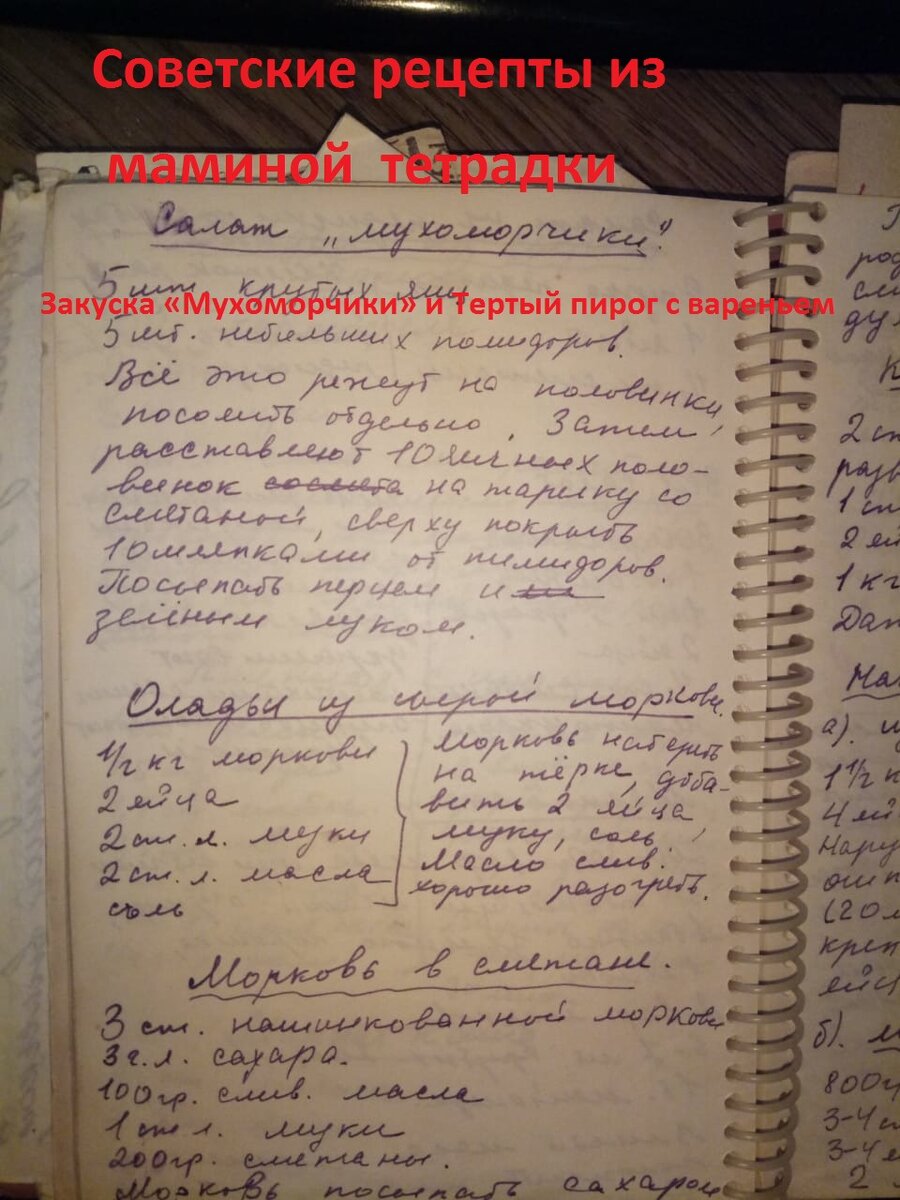 Советские рецепты из
маминой тетрадки
Салат „мухоморчики".
5 шт. крутых яиц
Закуска «Мухоморчики» и тертый пирог с вареньем
5 шт. небольших помидоров.
Всё это режут на половинки,
посолить отдельно. Затем
расставляют 10 яичных поло-
винок на тарелку со
сметаной, сверху покрыть
10 шляпками от помидоров.
Посыпать перцем и
зелёным луком.
Оладьи из сырой моркови.
1/2 кг моркови
2 яйца
2 ст. л. муки
2 ст. л. масла
соль
Морковь натереть
на тёрке, доба-
вить 2 яйца
муку, соль.
Масло слив.
хорошо разогреть.
Морковь в сметане.
3 ст. нашинкованной моркови
3 ч. л. сахара.
100 гр. слив. масла
1 ст л. муки
200 гр. сметаны.
Морковь посыпать сахаром
2 ст
разв
1 ст
2 яй
1 кг
а).
1 1/2 к
4 яй
(20
креп
яйц
б). м
800 гр
3-4 с
3-4
2